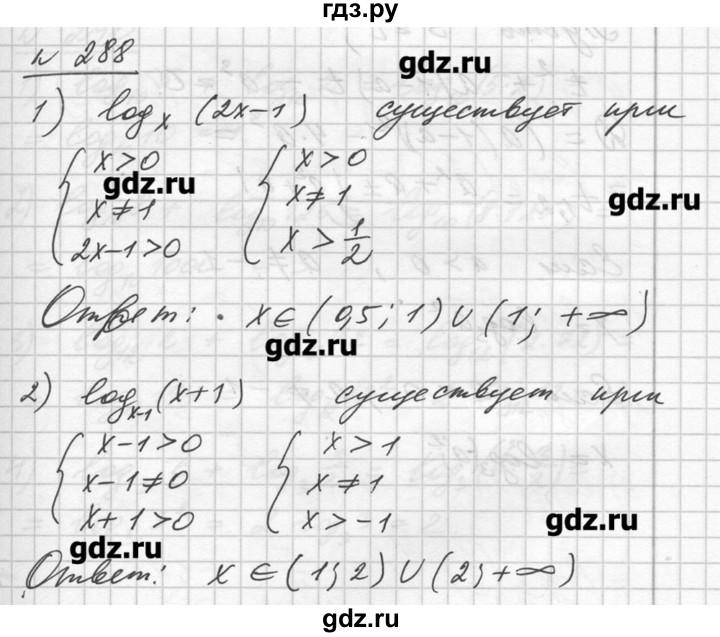 гдз.ру
N 288
gdz.ru
1) log_x (2x-1) существует при
{ x>0 { x>0
gdz.ru
x≠1 x≠1
gdz.ru
2x-1>0 x>1/2
Ответ: . x∈(0,5; 1)∪(1; +∞)
gdz.ru
2) log_{x-1}(x+1) существует при
{ x-1>0 { x>1
x-1≠0 x≠1
x+1>0 x>-1
gdz.ru
gdz.ru
Ответ: x∈(1; 2)∪(2; +∞)
gdz.ru